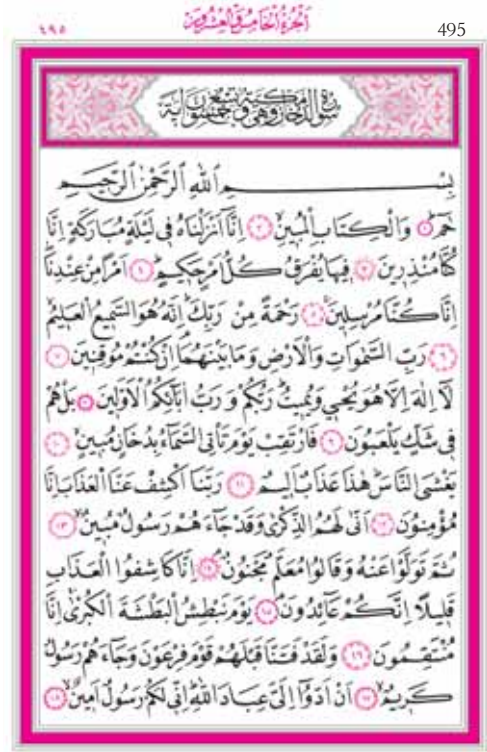 ٤٩٥ اَلْجُزْءُ الْخَامِسُ وَالْعِشْرُونَ 495
سُورَةُ الدُّخَانِ مَكِّيَّةٌ وَهِيَ تِسْعٌ وَخَمْسُونَ اٰيَةً
بِسْمِ اللّٰهِ الرَّحْمٰنِ الرَّحِيمِ
حٰمٓ ﴿١﴾ وَالْكِتَابِ الْمُبِينِ ﴿٢﴾ اِنَّٓا اَنْزَلْنَاهُ فِي لَيْلَةٍ مُبَارَكَةٍ اِنَّا
كُنَّا مُنْذِرِينَ ﴿٣﴾ فِيهَا يُفْرَقُ كُلُّ اَمْرٍ حَكِيمٍ ﴿٤﴾ اَمْرًا مِنْ عِنْدِنَا
اِنَّا كُنَّا مُرْسِلِينَ ﴿٥﴾ رَحْمَةً مِنْ رَبِّكَ اِنَّهُ هُوَ السَّمِيعُ الْعَلِيمُ
﴿٦﴾ رَبِّ السَّمٰوَاتِ وَالْاَرْضِ وَمَا بَيْنَهُمَا اِنْ كُنْتُمْ مُوقِنِينَ ﴿٧﴾
لَٓا اِلٰهَ اِلَّا هُوَ يُحْيِي وَيُمِيتُ رَبُّكُمْ وَرَبُّ اٰبَٓائِكُمُ الْاَوَّلِينَ ﴿٨﴾ بَلْ هُمْ
فِي شَكٍّ يَلْعَبُونَ ﴿٩﴾ فَارْتَقِبْ يَوْمَ تَاْتِي السَّمَٓاءُ بِدُخَانٍ مُبِينٍ ﴿١٠﴾
يَغْشَى النَّاسَ هٰذَا عَذَابٌ اَلِيمٌ ﴿١١﴾ رَبَّنَا اكْشِفْ عَنَّا الْعَذَابَ اِنَّا
مُؤْمِنُونَ ﴿١٢﴾ اَنّٰى لَهُمُ الذِّكْرٰى وَقَدْ جَٓاءَهُمْ رَسُولٌ مُبِينٌ ﴿١٣﴾
ثُمَّ تَوَلَّوْا عَنْهُ وَقَالُوا مُعَلَّمٌ مَجْنُونٌ ﴿١٤﴾ اِنَّا كَاشِفُوا الْعَذَابِ
قَلِيلًا اِنَّكُمْ عَٓائِدُونَ ﴿١٥﴾ يَوْمَ نَبْطِشُ الْبَطْشَةَ الْكُبْرٰى اِنَّا
مُنْتَقِمُونَ ﴿١٦﴾ وَلَقَدْ فَتَنَّا قَبْلَهُمْ قَوْمَ فِرْعَوْنَ وَجَٓاءَهُمْ رَسُولٌ
كَرِيمٌ ﴿١٧﴾ اَنْ اَدُّٓوا اِلَيَّ عِبَادَ اللّٰهِ اِنِّي لَكُمْ رَسُولٌ اَمِينٌ ﴿١٨﴾